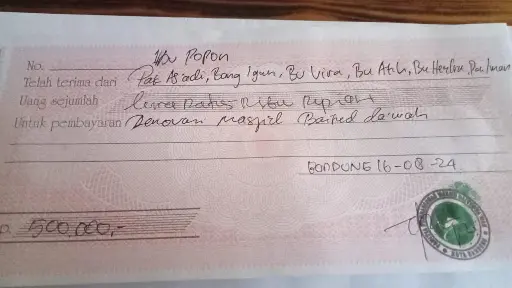 Ibu Popon
No.
Telah terima dari Pak Asadi, Bang Igun, Bu Vira, Bu Atih, Bu Herlin, Pa Iman
Uang sejumlah Lima Ratus Ribu Rupiah
Untuk pembayaran Renovasi Masjid Baitud da'wah
BANDUNG 16-08-24
500,000,-